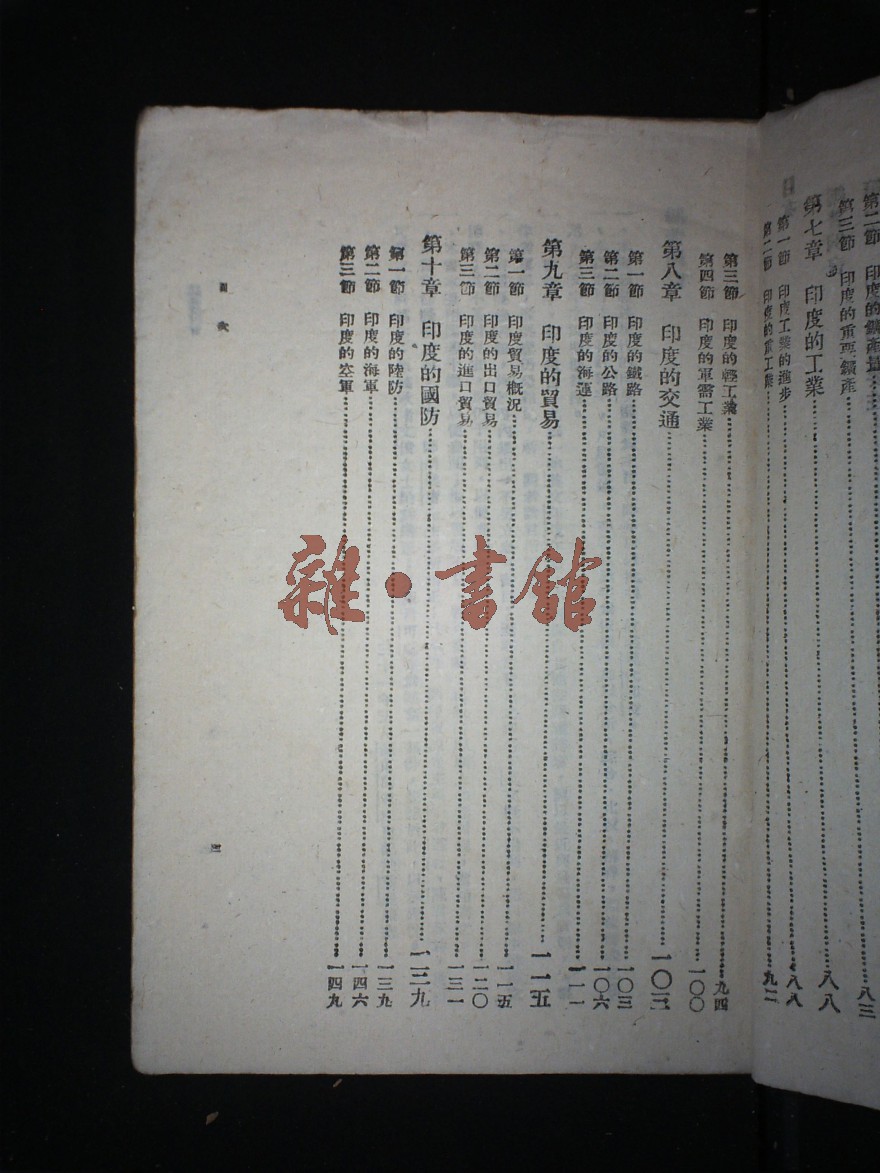 第二節 印度的鑛產量
第三節 印度的重要鑛產……八三
第七章 印度的工業……八八
第一節 印度工業的進步……八八
第二節 印度的重工業……九二
第三節 印度的輕工業……九四
第四節 印度的軍需工業……一〇〇
第八章 印度的交通……一〇三
第一節 印度的鐵路……一〇三
第二節 印度的公路……一〇六
第三節 印度的海運……一一一
第九章 印度的貿易……一一五
第一節 印度貿易概況……一一五
第二節 印度的出口貿易……一二〇
第三節 印度的進口貿易……一三一
第十章 印度的國防……一三九
第一節 印度的陸防……一三九
第二節 印度的海軍……一四六
第三節 印度的空軍……一四九
目次
四
雜·書館